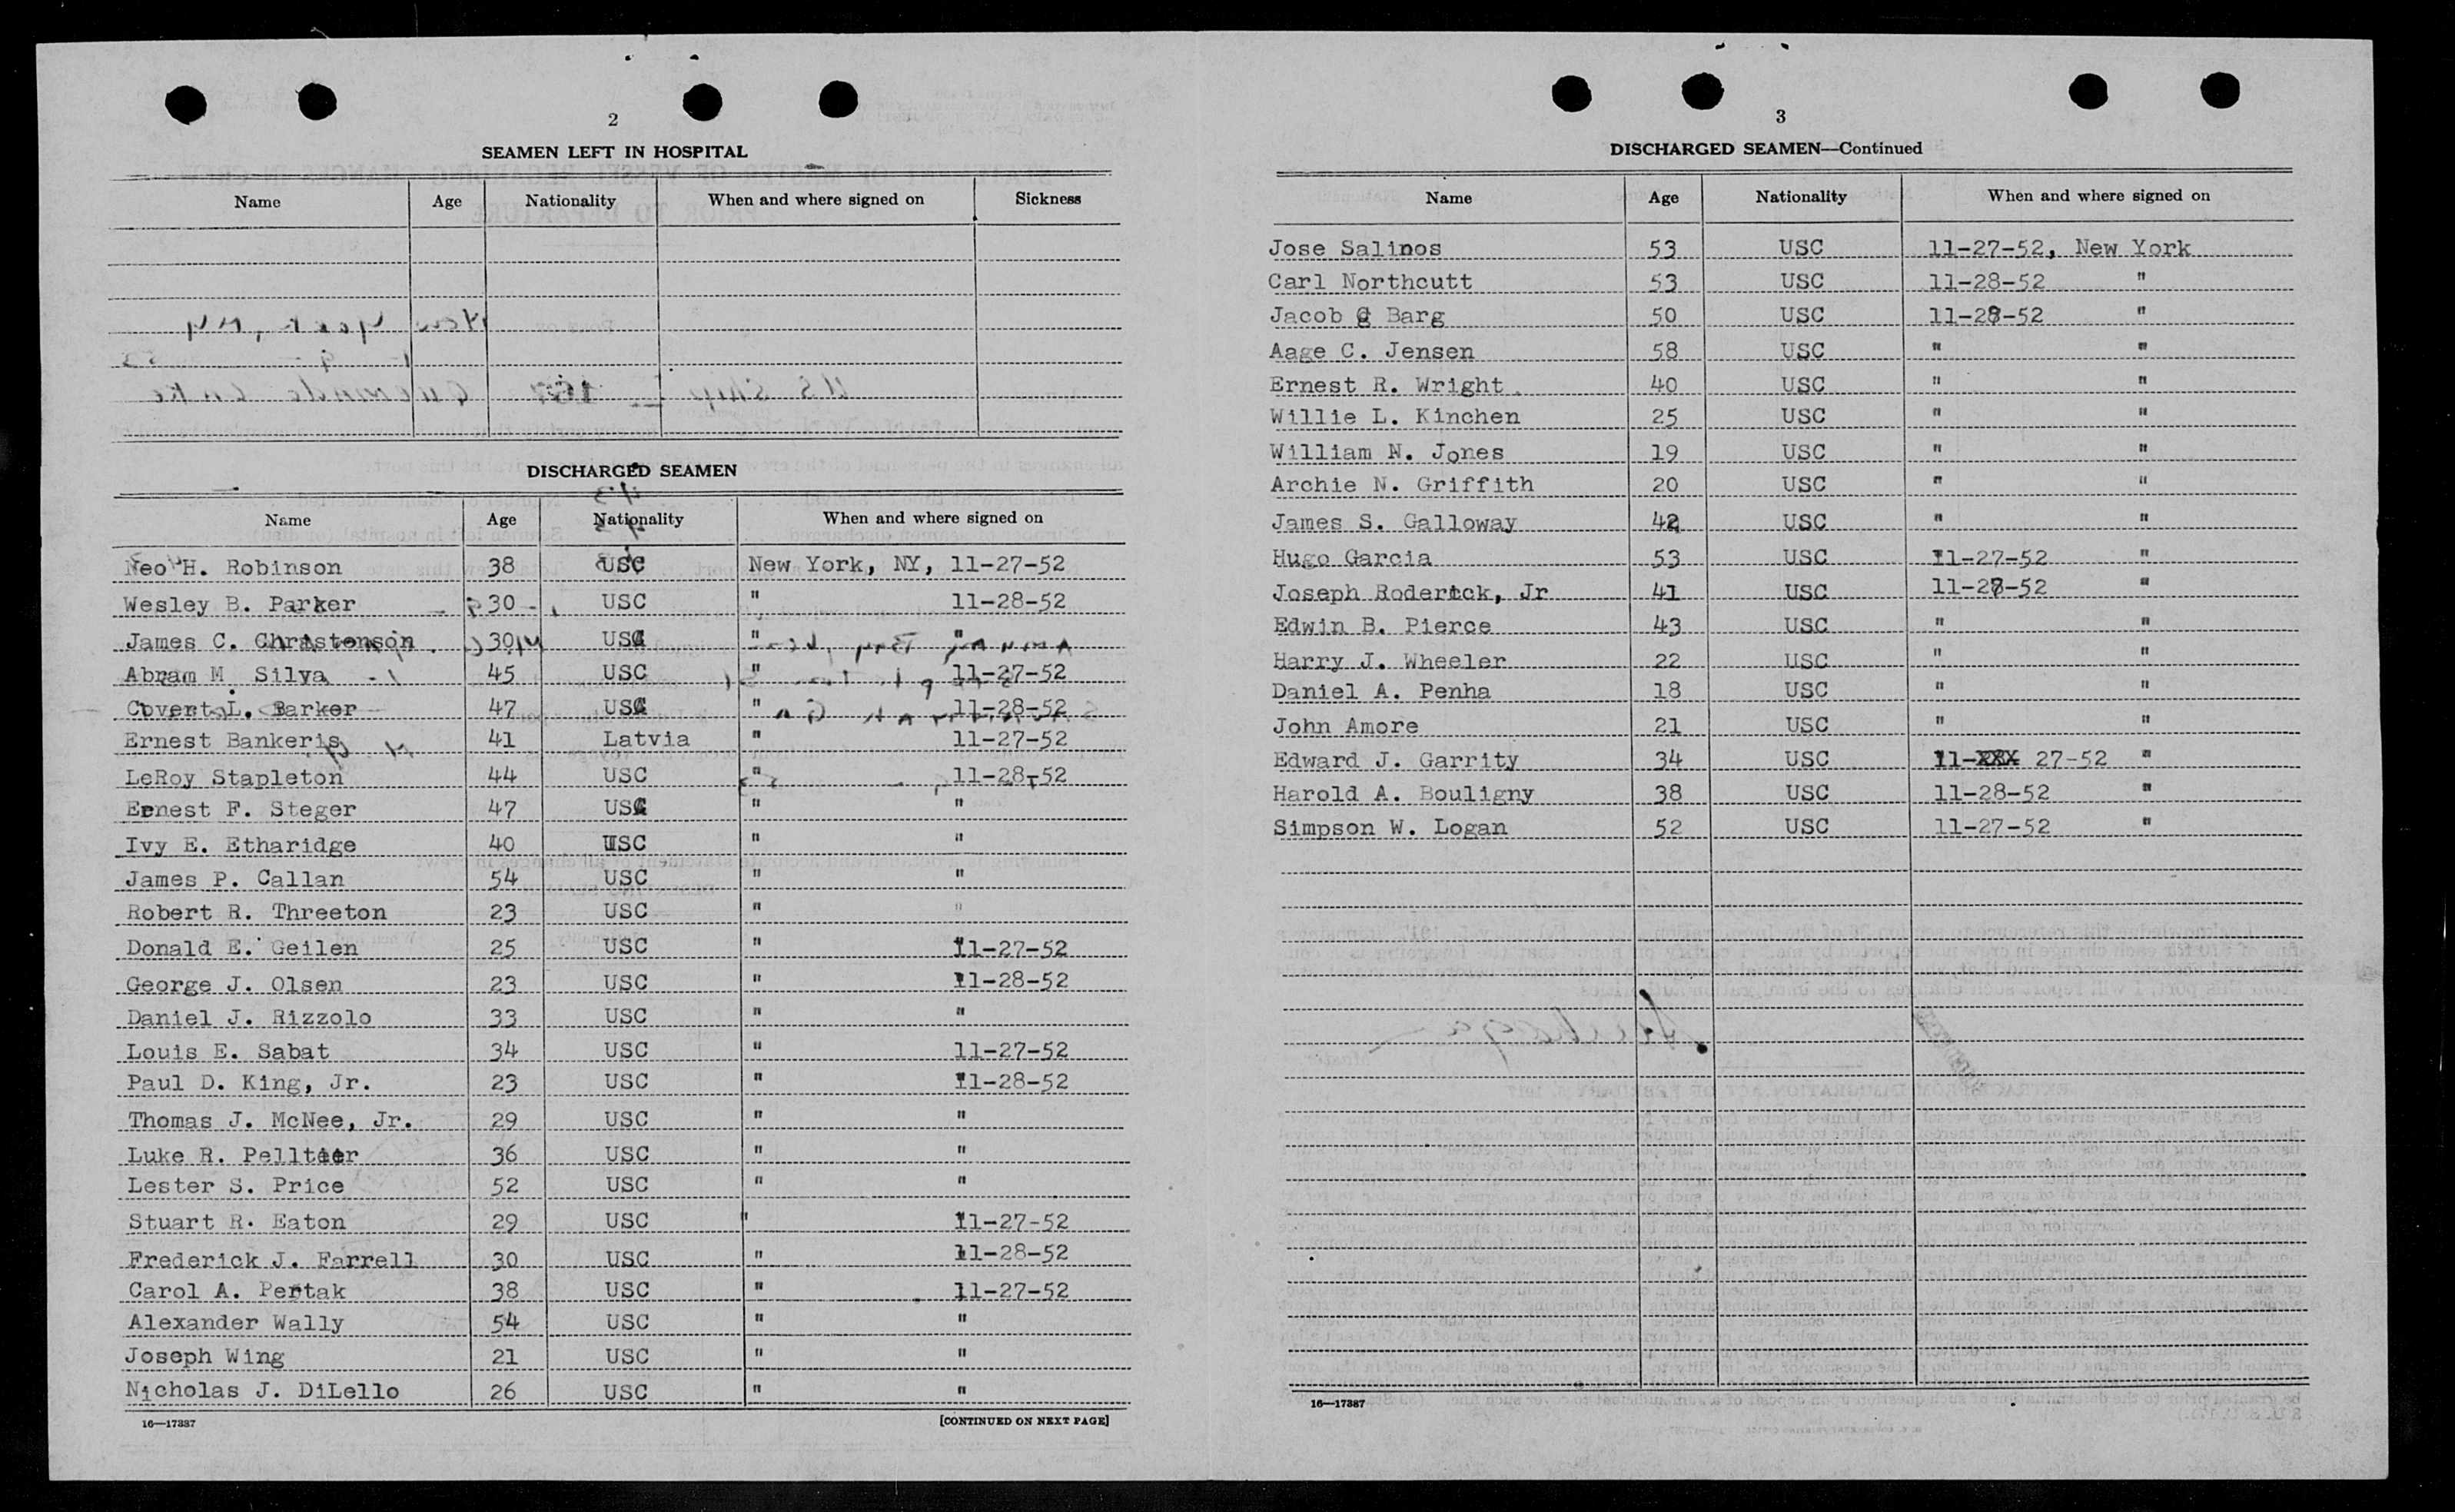 2
SEAMEN LEFT IN HOSPITAL
Name Age Nationality When and where signed on Sickness
DISCHARGED SEAMEN
Name Age Nationality When and where signed on
Neo H. Robinson 38 USC New York, NY, 11-27-52
Wesley B. Parker 30 USC " 11-28-52
James C. Christenson 30 USC " "
Abram M. Silva 45 USC " 11-27-52
Covert L. Barker 47 USC " 11-28-52
Ernest Bankeris 41 Latvia " 11-27-52
LeRoy Stapleton 44 USC " 11-28-52
Ernest F. Steger 47 USC " "
Ivy E. Etharidge 40 USC " "
James P. Callan 54 USC " "
Robert R. Threeton 23 USC " "
Donald E. Geilen 25 USC " 11-27-52
George J. Olsen 23 USC " 11-28-52
Daniel J. Rizzolo 33 USC " "
Louis E. Sabat 34 USC " 11-27-52
Paul D. King, Jr. 23 USC " 11-28-52
Thomas J. McNee, Jr. 29 USC " "
Luke R. Pelltier 36 USC " "
Lester S. Price 52 USC " "
Stuart R. Eaton 29 USC " 11-27-52
Frederick J. Farrell 30 USC " 11-28-52
Carol A. Pertak 38 USC " 11-27-52
Alexander Wally 54 USC " "
Joseph Wing 21 USC " "
Nicholas J. DiLello 26 USC " "
16—17387 [CONTINUED ON NEXT PAGE]
3
DISCHARGED SEAMEN—Continued
Name Age Nationality When and where signed on
Jose Salinos 53 USC 11-27-52, New York
Carl Northcutt 53 USC 11-28-52 "
Jacob Barg 50 USC 11-28-52 "
Aage C. Jensen 58 USC " "
Ernest R. Wright 40 USC " "
Willie L. Kinchen 25 USC " "
William N. Jones 19 USC " "
Archie N. Griffith 20 USC " "
James S. Galloway 42 USC " "
Hugo Garcia 53 USC 11-27-52 "
Joseph Roderick, Jr 41 USC 11-28-52 "
Edwin B. Pierce 43 USC " "
Harry J. Wheeler 22 USC " "
Daniel A. Penha 18 USC " "
John Amore 21 USC " "
Edward J. Garrity 34 USC 11-XXX 27-52 "
Harold A. Bouligny 38 USC 11-28-52 "
Simpson W. Logan 52 USC 11-27-52 "
16—17387